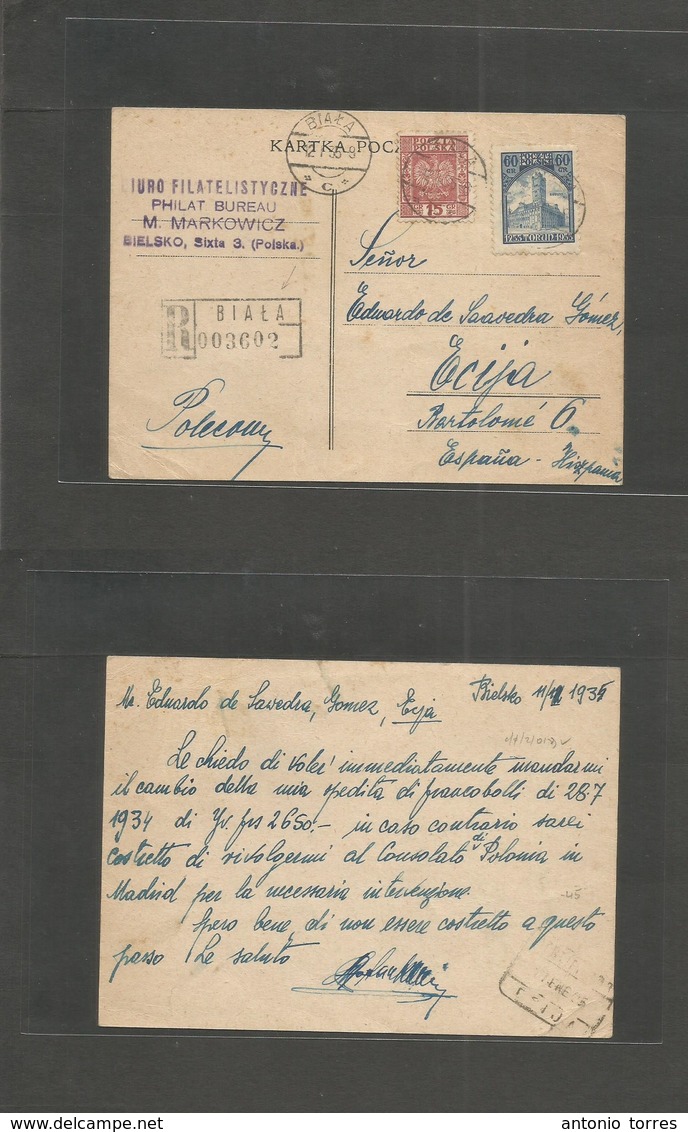 KARTKA POCZ
BIAŁA
POLSKA
15
60 POLSKA 60
GR GR
BIURO FILATELISTYCZNE
PHILAT BUREAU
M. MARKOWICZ
BIELSKO, Sixta 3. (Polska.)
R BIAŁA
003602
Polecony
Señor
Eduardo de Saavedra Gómez,
Ecija
Bartolomé 6
España - Hiszpania
Mr. Eduardo de Savedra, Gomez, Ecija
Bielsko 11/ 1935
Le chiedo di voler immediatamente mandarmi
il cambio della mia spedita di francobolli di 28.7
1934 di Yv. frs 2650.- in caso contrario sarei
costretto di rivolgermi al Consolato di Polonia in
Madrid per la necessaria intervenzione.
Spero bene, di non essere costretto a questo
passo Le saluto
antonio torres